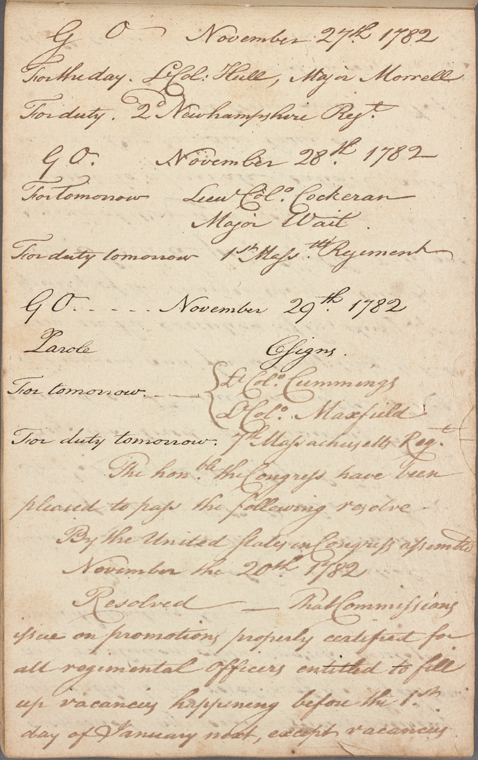 G O November 27th 1782
For the day. Lt Col: Hull, Major Morrell
For duty. 2d Newhampshire Regt.
G O. November 28th. 1782
For tomorrow Lieut Colo Cockeran
Major Wait
For duty tomorrow 1st Massts Regiment
G O. - - - - - November 29th. 1782
Parole CSigns.
For tomorrow - - - { Lt Colo. Cummings
Lt Colo. Maxfield
For duty tomorrow. 7th Massachusetts Regt.
The honble the Congress have been
pleased to pass the following resolve
By the United States in Congress assembled
November the 20th 1782
Resolved — That Commissions
issue on promotions properly certified for
all regimental Officers entitled to fill
up vacancies happening before the 1st
day of January next, except vacancies